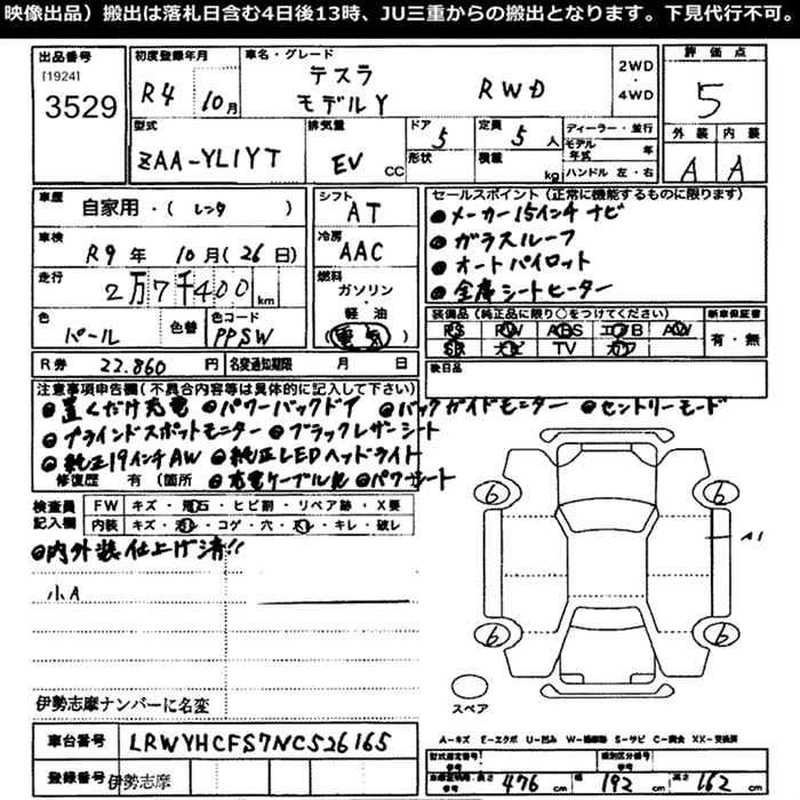 映像出品）搬出は落札日含む4日後13時、JU三重からの搬出となります。下見代行不可。
出品番号
[1924]
3529
初度登録年月
R4 10月
車名・グレード
テスラ
モデルY RWD
2WD
・
4WD
評価点
5
型式
ZAA-YL1YT
排気量
EV CC
ドア 5
形状
定員 5 人
積量 kg
ディーラー・並行
モデル年式 年
ハンドル 左・右
外装 内装
A A
車歴
自家用・( レンタ )
車検
R9 年 10月(26日)
走行
2万7千400 km
色
パール
色替
色コード
PPSW
シフト
AT
冷房
AAC
燃料
ガソリン
・
軽油
(電気)
セールスポイント(正常に機能するものに限ります)
●メーカー15インチナビ
●ガラスルーフ
●オートパイロット
●全席シートヒーター
装備品(純正品に限り○をつけてください)
PS PW ABS エアB AW
SR ナビ TV カワ
新車保証書
有・無
R券 22,860 円
名変通知期限 月 日
後日品
注意事項申告欄(不具合内容等は具体的に記入して下さい)
●置くだけ充電 ●パワーバックドア ●バックガイドモニター ●セントリーモード
●ブラインドスポットモニター ●ブラックレザーシート
●純正19インチAW ●純正LEDヘッドライト
修復歴 有 (箇所 ●充電ケーブル有 ●パワーシート
検査員
記入欄
FW キズ・飛石・ヒビ割・リペア跡・X要
内装 キズ・汚レ・コゲ・穴・スレ・キレ・破レ
●内外装仕上げ済!!
小A
伊勢志摩ナンバーに名変
6 6
A1
6 6
スペア
A-キズ E-エクボ U-凹み W-補修跡 S-サビ C-腐食 XX-交換済
車台番号 LRWYHCFS7NC526165
登録番号 伊勢志摩
型式指定番号
参考
類別区分番号
参考
長さ 476 cm 幅 192 cm 高さ 162 cm